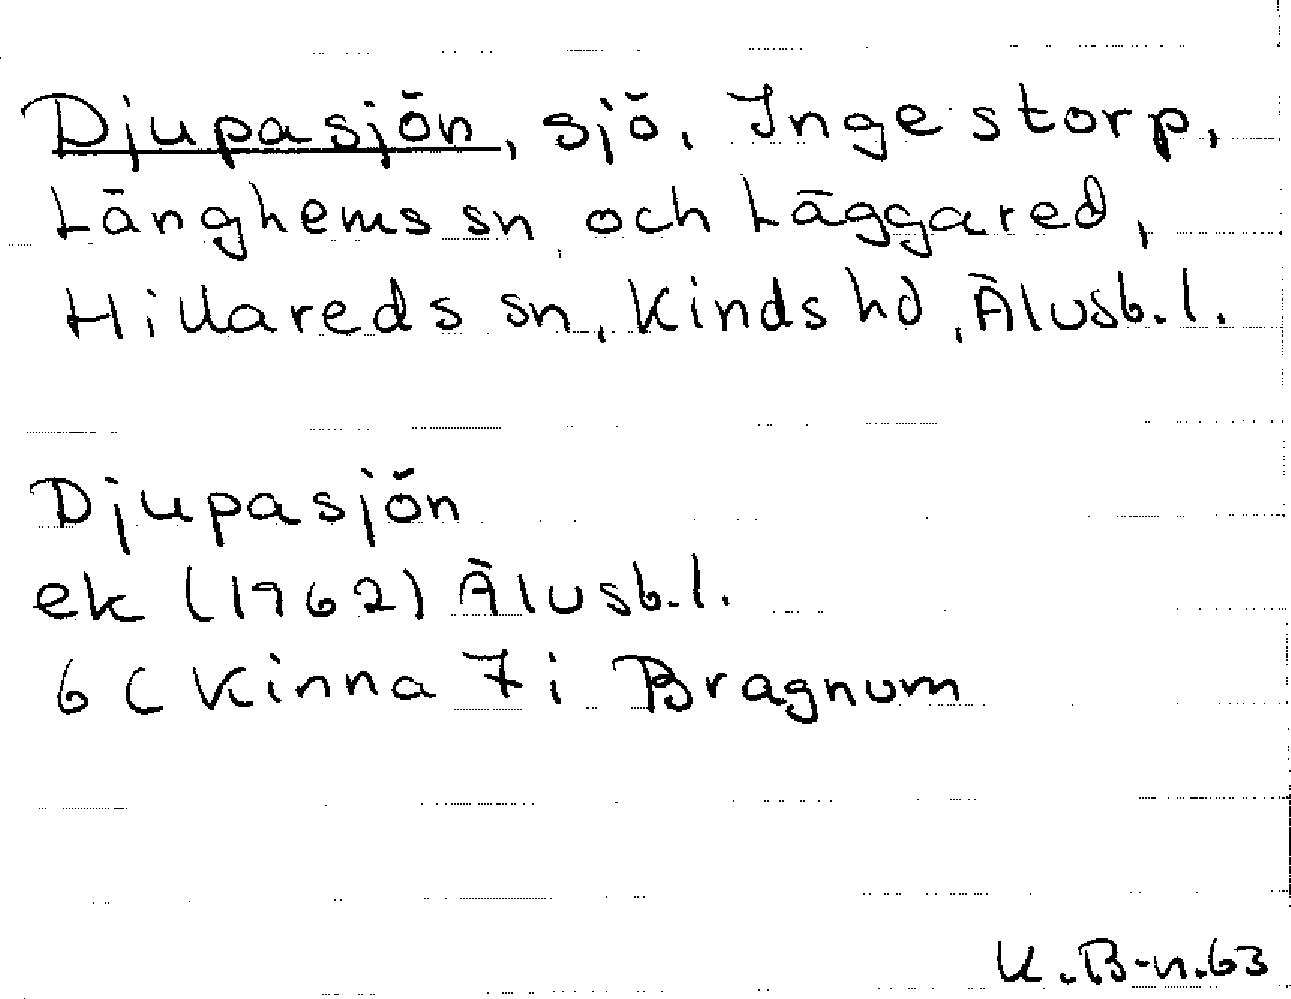 Djupasjön, sjö, Ingestorp,
Länghems sn och Läggared,
Hillareds sn, Kinds hd, Älvsb. l.
Djupasjön
ek (1962) Älvsb. l.
6 C Kinna 7 i Bragnum
K. B-n. 63